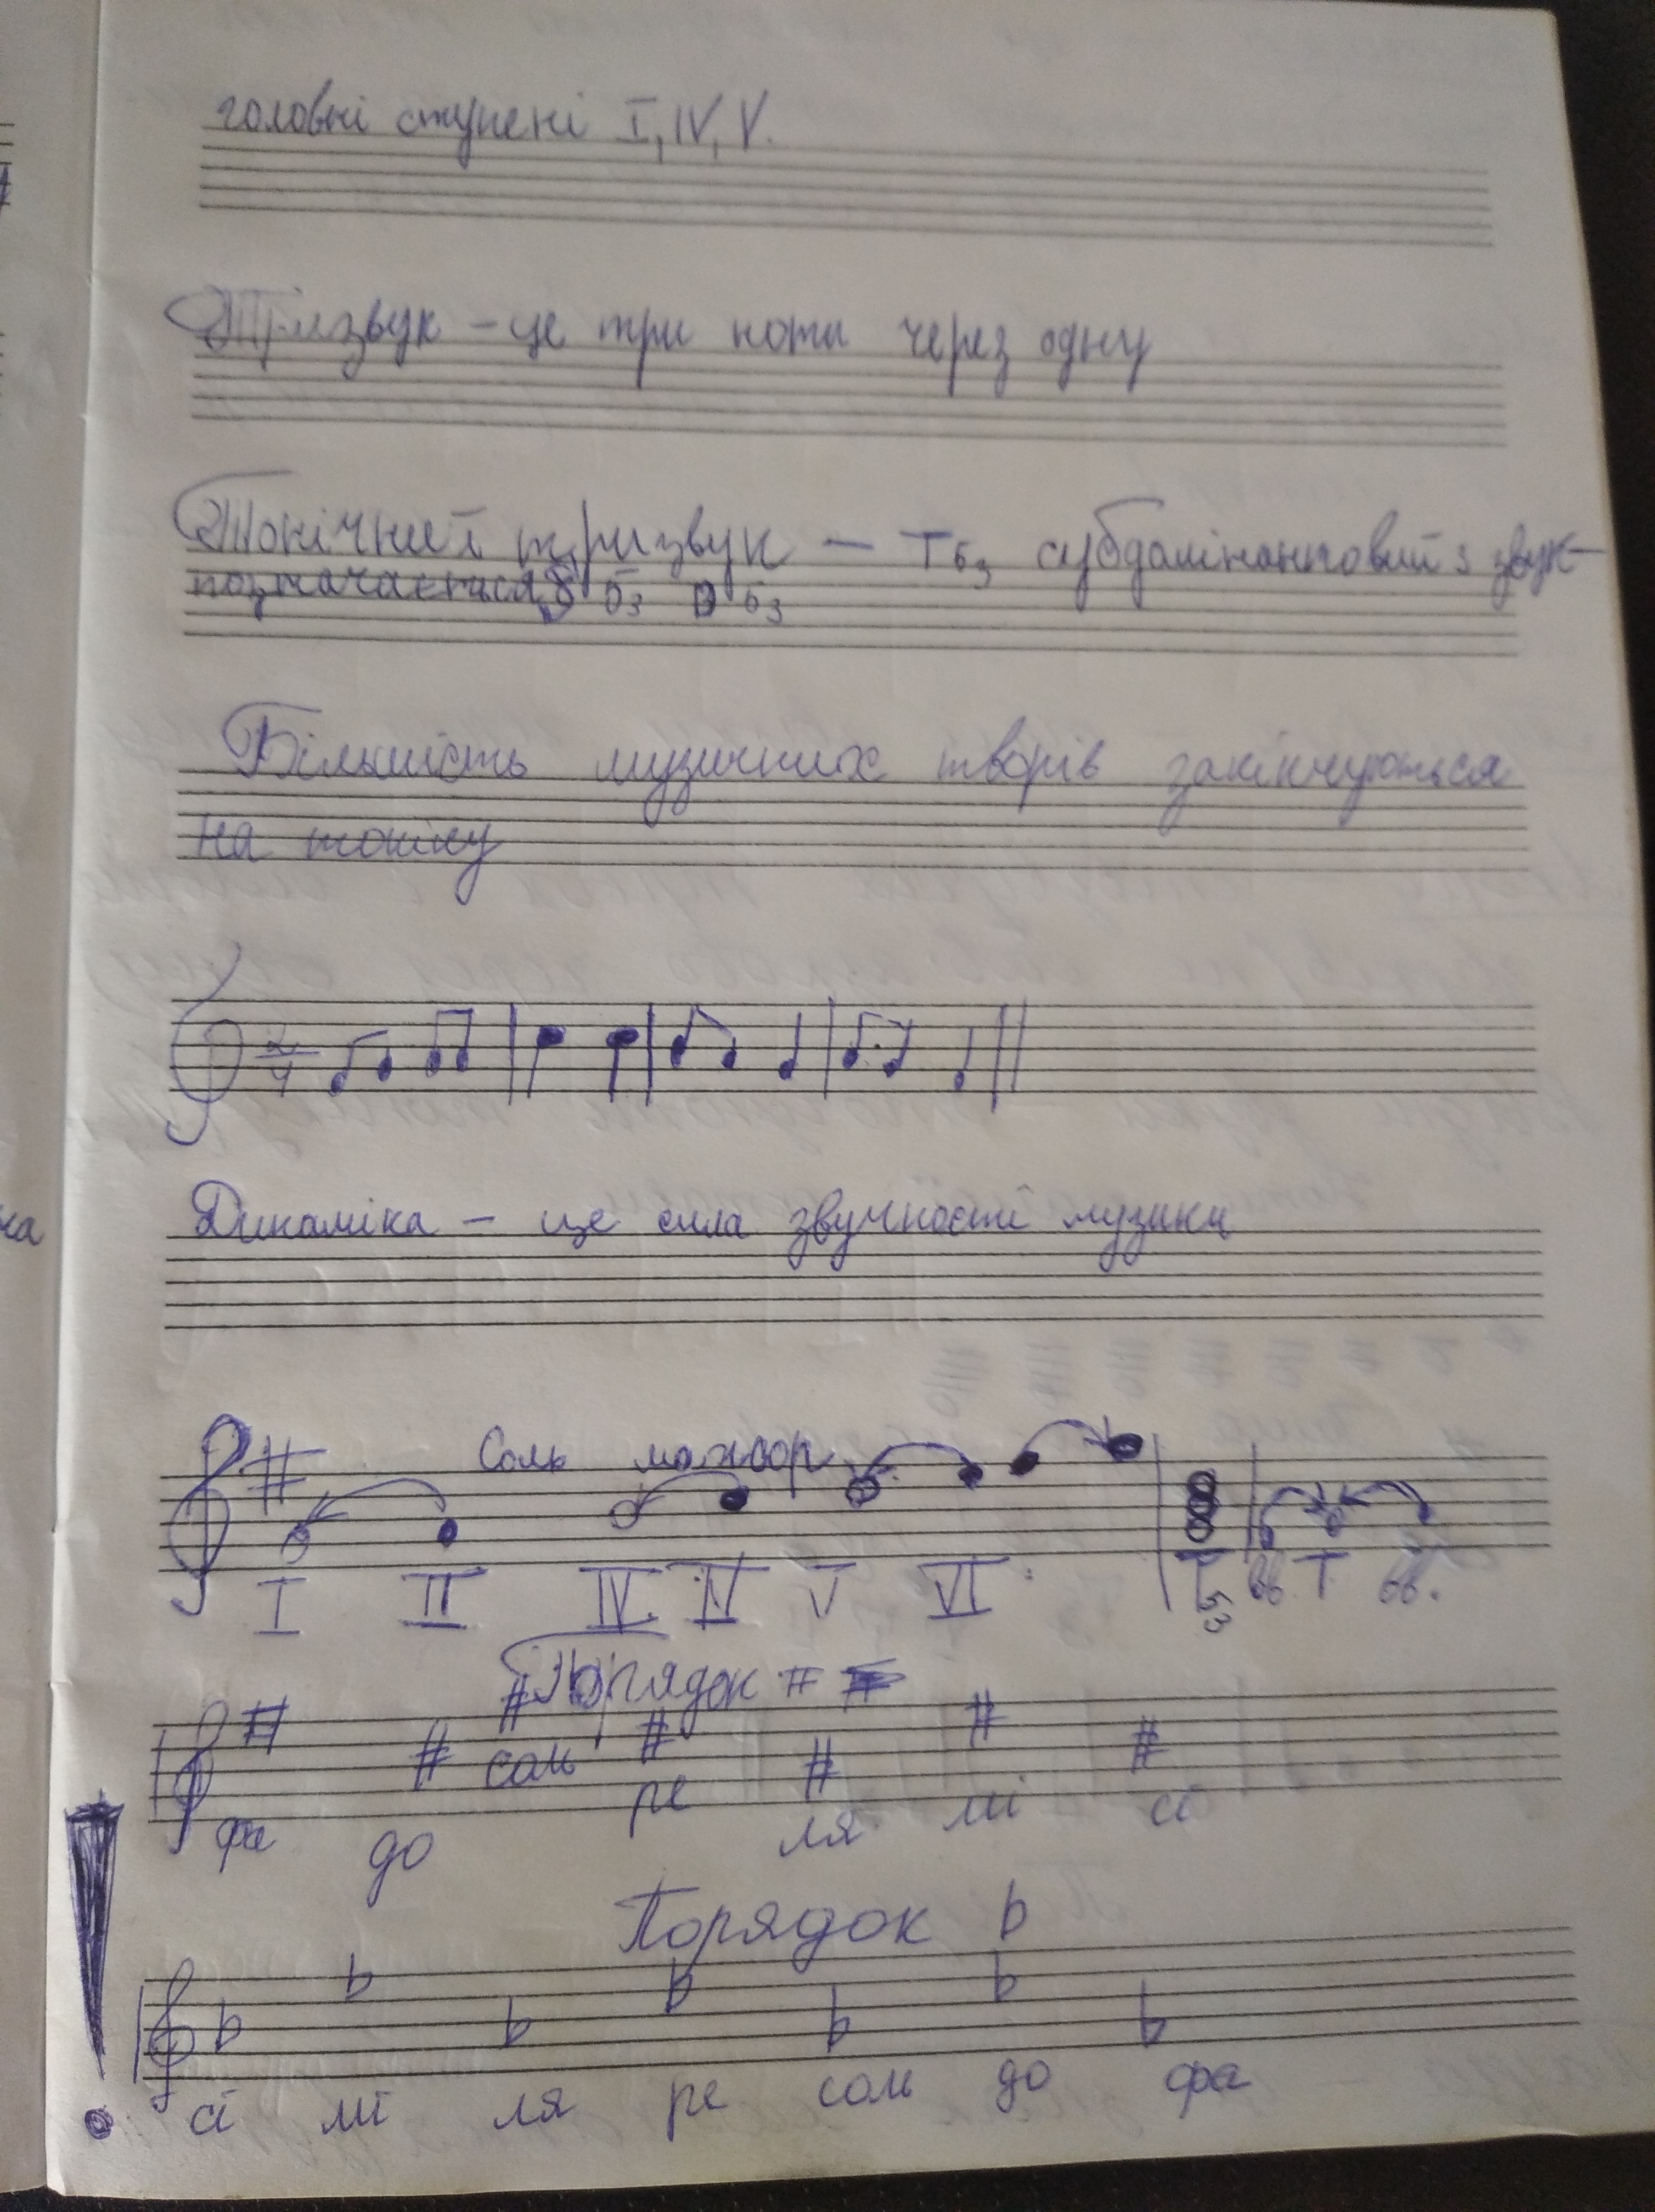 головні ступені I, IV, V.
Тризвук – це три ноти через одну
Тонічний тризвук – Т53 субдомінантовий 3 звук –
позначається S 53 D 53
Більшість музичних творів закінчуються
на тоніку
2/4
Динаміка – це сила звучності музики
Соль мажор
I II IV IV V VI T53 вв. T вв.
Порядок #
фа до соль ре ля мі сі
Порядок ♭
сі мі ля ре соль до фа